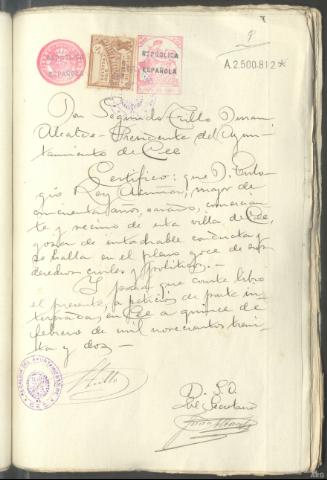 REPÚBLICA
ESPAÑOLA
REPÚBLICA
ESPAÑOLA
A2.500.812*
Don Segundo Trillo
Alcalde-Presidente del Ayun-
tamiento de Cee
Certifico: que D.
Rey, mayor de
cincuenta años, casado, comercian-
te y vecino de esta villa de Cee,
goza de intachable conducta y
se halla en el pleno goce de sus
derechos civiles y políticos.-
Y para que conste libro
el presente, a petición de parte in-
teresada, en Cee a quince de
febrero de mil novecientos trein-
ta y dos -
STrillo
D. S. O.
El Secretario